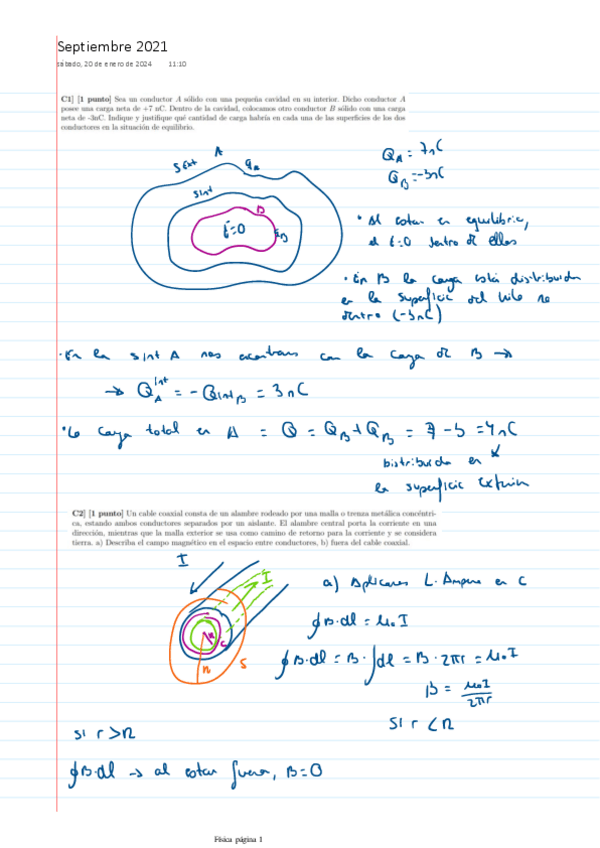 Septiembre 2021
sábado, 20 de enero de 2024 11:10
C1] [1 punto] Sea un conductor A sólido con una pequeña cavidad en su interior. Dicho conductor A
posee una carga neta de +7 nC. Dentro de la cavidad, colocamos otro conductor B sólido con una carga
neta de -3nC. Indique y justifique qué cantidad de carga habría en cada una de las superficies de los dos
conductores en la situación de equilibrio.
A
Sext
QA
Sint
B
E=0
QA = 7nC
QB = -3nC
• Al estar en equilibrio,
el E=0 dentro de ellos
• En B la carga está distribuida
en la superficie del
dentro (-3nC)
• En la sint A nos encontramos con la carga de B →
→ QA^int = - Qint B = 3nC
• La carga total en A = Q = QB + QB = 7 - 3 = 4nC
Distribuida en
la superficie exterior
C2] [1 punto] Un cable coaxial consta de un alambre rodeado por una malla o trenza metálica concéntri-
ca, estando ambos conductores separados por un aislante. El alambre central porta la corriente en una
dirección, mientras que la malla exterior se usa como camino de retorno para la corriente y se considera
tierra. a) Describa el campo magnético en el espacio entre conductores, b) fuera del cable coaxial.
I
I
R
C
S
a) Aplicamos L. Ampere en C
∮B·dl = μ₀ I
∮ B·dl = B·∫dl = B·2πr = μ₀I
B = μ₀I / 2πr
SI r < R
SI r > R
∮B·dl → al estar fuera, B=0
Física página 1